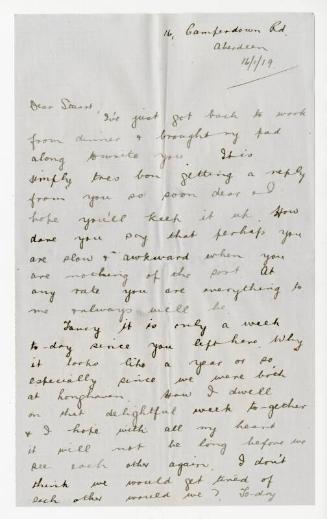 16, Camperdown Rd.
Aberdeen
16/1/19
Dear Stuart,
I've just got back to work
from dinner & brought my pad
along to write you. It is
simply tres bon getting a reply
from you so soon dear & I
hope you'll keep it up. How
dare you say that perhaps you
are slow & awkward when you
are nothing of the sort. At
any rate you are everything to
me & always will be.
Fancy it is only a week
to-day since you left here. Why
it looks like a year or so
especially since we were both
at Longhaven. How I dwell
on that delightful week to-gether
& I hope with all my heart
it will not be long before we
see each other again. I don't
think we would get tired of
each other would we? To-day